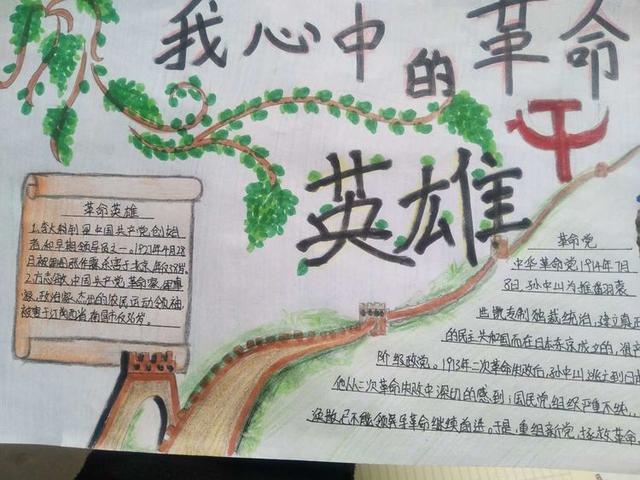 我心中的革命
英雄
革命英雄
1.李大钊 中国共产党创始
者和早期领导 之一。1927年4月28
日被 军 杀害于北京,年 38岁。
2.方志敏,中国共产党革命家,军事
家,政治家,杰出的农民运动领袖
被害于江西省南昌市 36岁。
革命党
中华革命党1914年7月
8日,孙中山为推翻袁
专制独裁统治,建立真正
的民主共和国而在日本东京成立的,资产
阶级政党。1913年二次革命失败后,孙中山逃亡到日
他从二次革命失败中深切的感到:国民党组织严重不纯,
涣散,已不能领导革命继续前进。于是,重组新党,拯救革命,